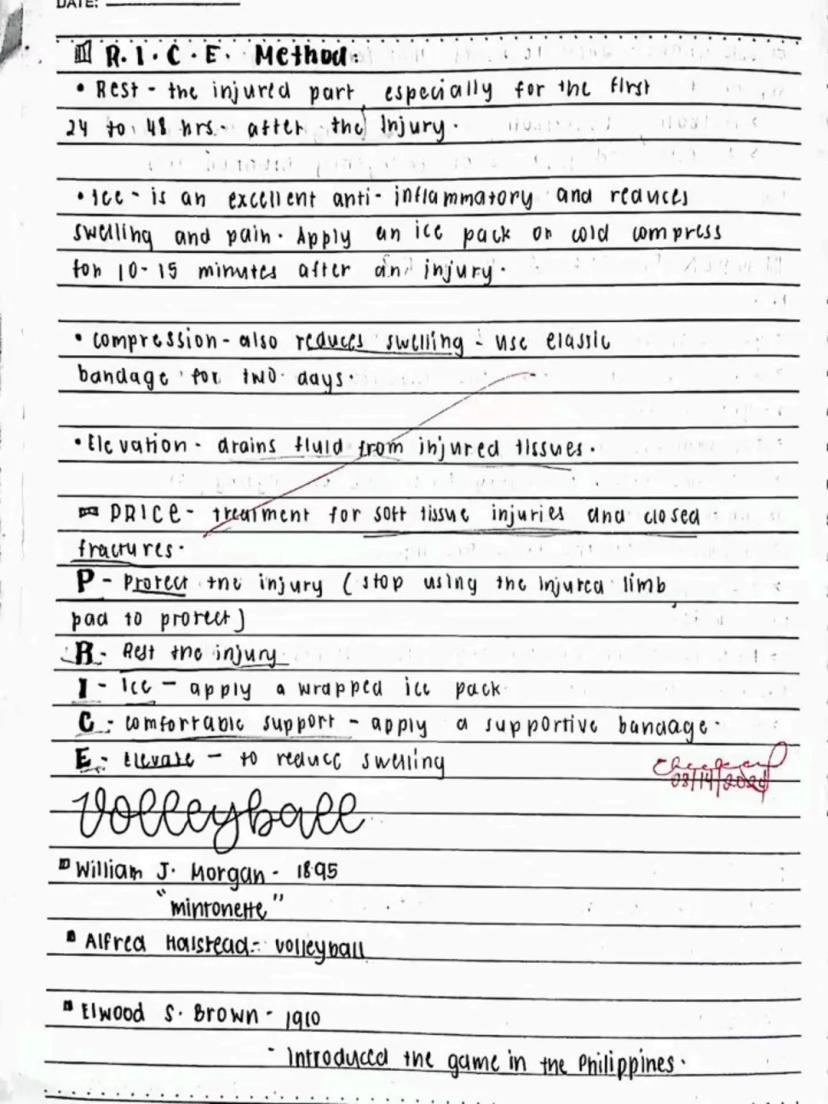 DATE:
R.I.C.E. Method.
• Rest - the injured part, especially for the first
24 to 48 hrs. after the injury.
• Ice - is an excellent anti-inflammatory and reduces
swelling and pain. Apply an ice pack or cold compress
for 10-15 minutes after an injury.
• compression - also reduces swelling - use elastic
bandage for two days.
• Elevation - drains fluid from injured tissues.
PRICE - treatment for soft tissue injuries and closed
fractures.
P - Protect the injury (stop using the injured limb,
pad to protect)
R - Rest the injury
I - Ice - apply a wrapped ice pack
C - comfortable support - apply a supportive bandage.
E - Elevate - to reduce swelling
03/14/2024
Volleyball
William J. Morgan - 1895
"mintonette"
Alfred Halstead - volleyball
Elwood S. Brown - 1910
- Introduced the game in the Philippines.